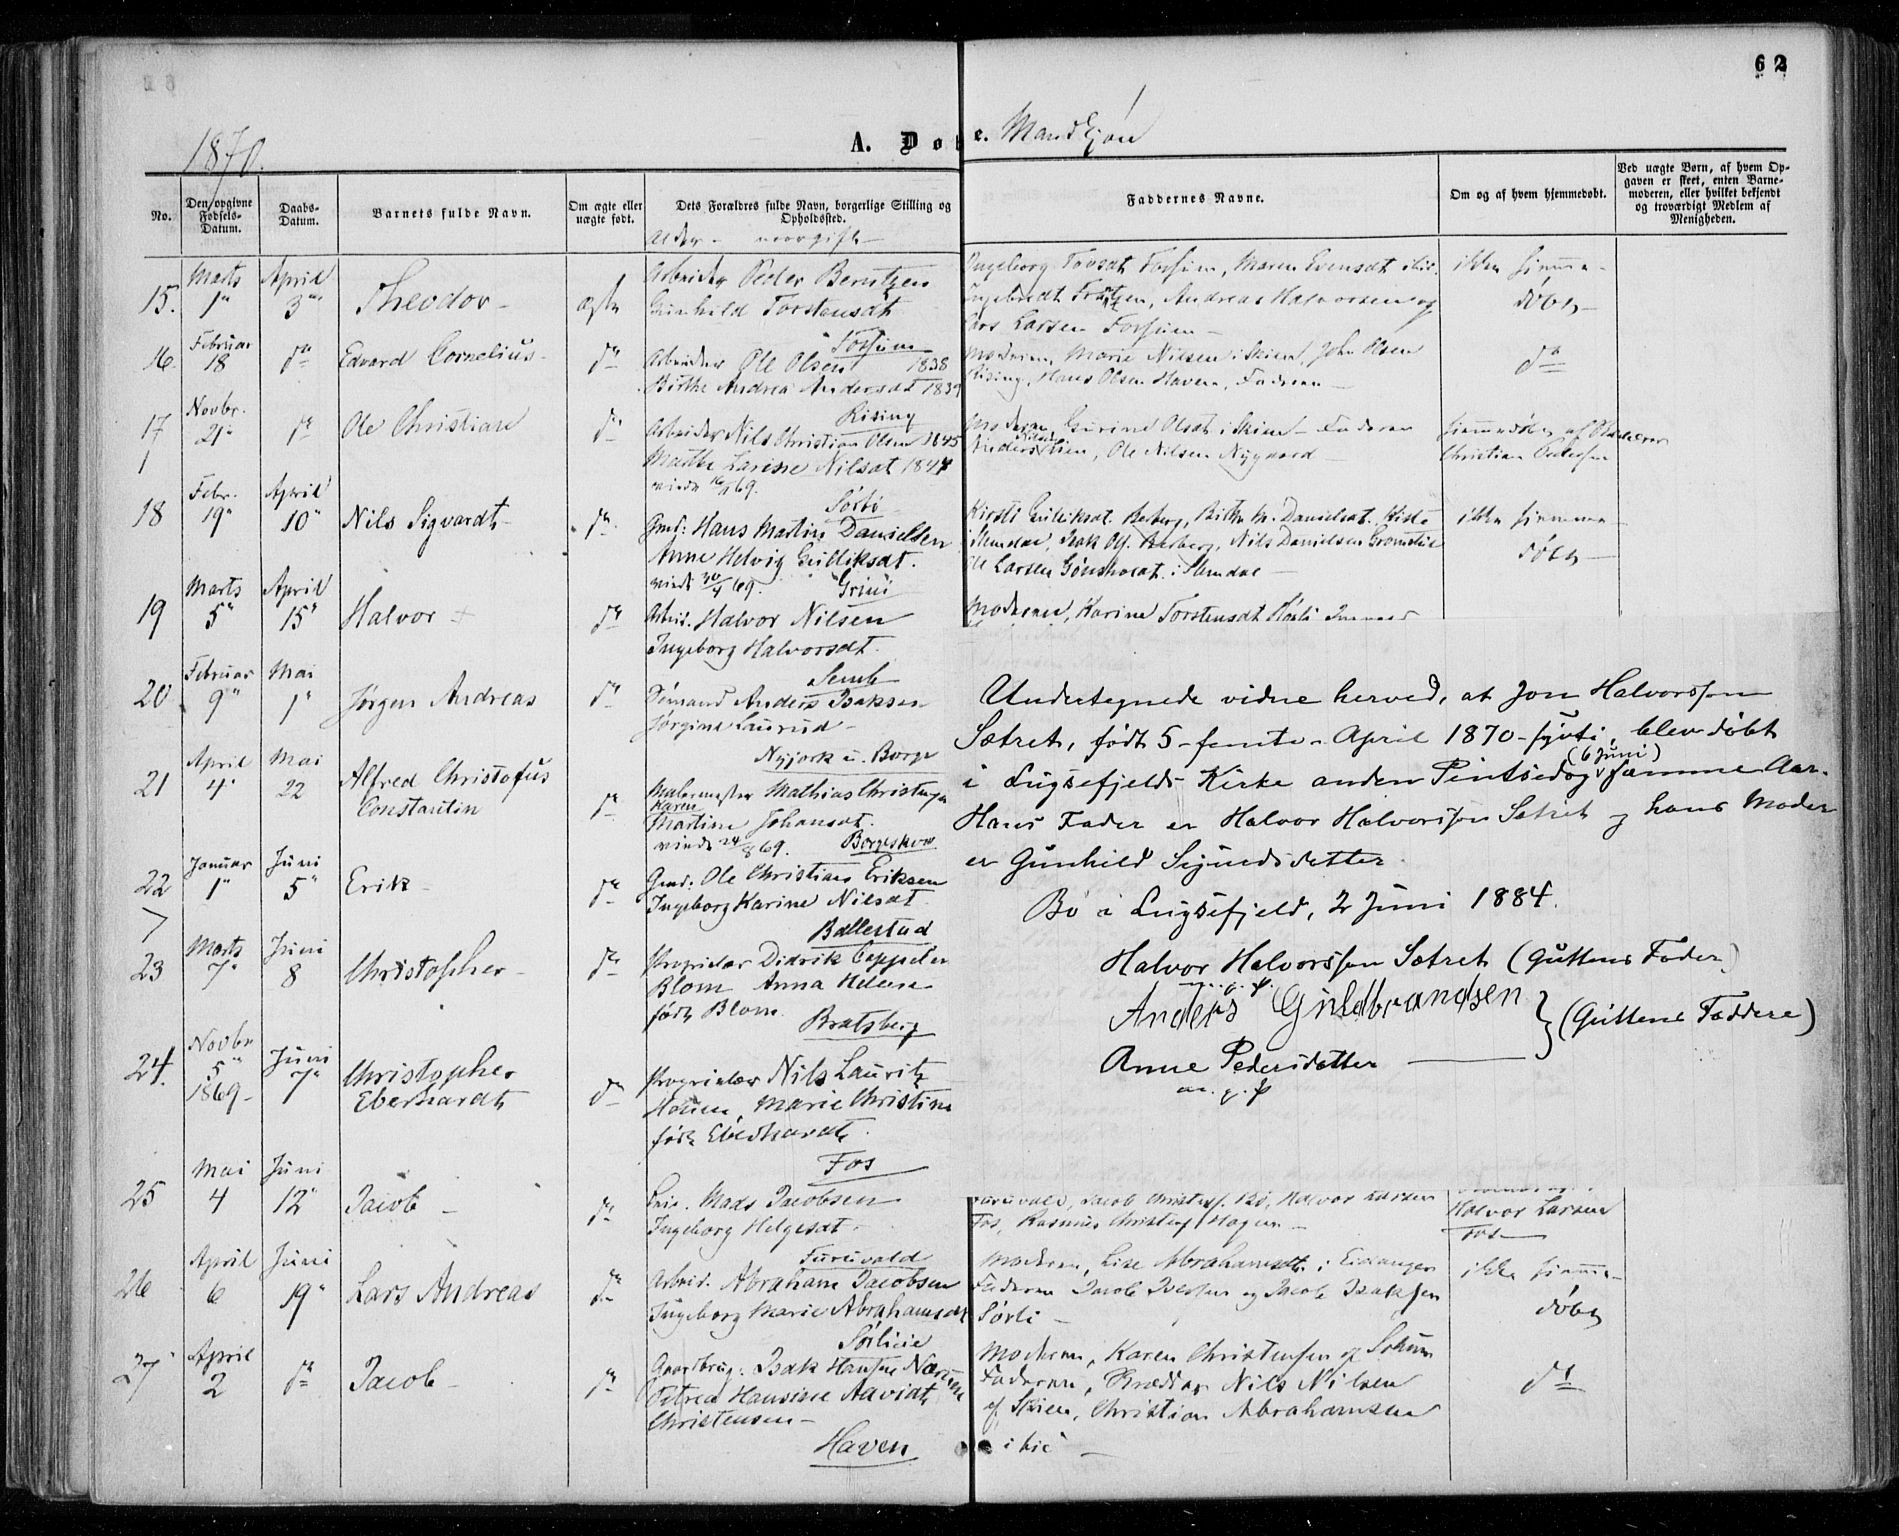 62
1870.
A. Døbte. Mandkjøn
No.
Den opgivne Fødsels-Datum.
Daabs-Datum.
Barnets fulde Navn.
Om ægte eller uægte født.
Dets Forældres fulde Navn, borgerlige Stilling og Opholdssted.
Faddernes Navne.
Om og af hvem hjemmedøbt.
Ved uægte Børn, af hvem Opgaven er skeet, enten Barnemoderen, eller hvilket bekjendt og troværdigt Medlem af Menigheden.
15. Marts 1" April 3" Theodor ægte
Arbeider Peder Berntzen
Gunhild Torstensdt
Fossum
Ingeborg Tovsdt Fossum, Maren Evensdt
Andreas Halvorsen og
Lars Larsen Fossum
ikke hjemme-
døbt
16. Februar 18 do Edvard Cornelius do
Arbeider Ole Olsen 1838
Birthe Andrea Andersdt 1839
Rising
Moderen, Marie Nilsen i Skien, John Olsen
Rising, Hans Olsen Haven, Faderen
do
17 Novbr. 21" do Ole Christian do
Arbeider Nils Christian Olsen 1845
Marthe Larisse Nilsdt 1844
Moderen, Gurine Olsdt i Skien - Faderen
Ole Nilsen Nygaard
hjemmedøbt af
Christian Pedersen
18 Febr. 19" April 10" Nils Sigvardt do
Gmd: Hans Martin Danielsen
Anne Helvig Gulliksdt.
viede 30/4 69. Grini
Kirsti Gulliksdt. Birthe M. Danielsdt.
Nils Danielsen
Ole Larsen
ikke hjemme
døbt
19 Marts 5" April 15" Halvor do
Arbeid. Halvor Nilsen
Ingeborg Halvorsdt.
Semb
Moderen, Karine Torstensdt
20 Februar 9" Mai 1" Jørgen Andreas do
Sømand Anders Isaksen
Jørgine Laurud
Nyjork u. Borge
21 April 4" Mai 22 Alfred Christofus
Constantin do
Malermester Mathias Christensen
Karen
Martine Johansdt.
viede 24/8 69. Borgeskov
22 Januar 1" Juni 5" Erik do
Gmd: Ole Christian Eriksen
Ingeborg Karine Nilsdt
Ballestad
23 Marts 7" Juni 8 Christopher do
Proprietær Didrik Cappelen
Blom Anna Helene
født Blom
Bratsberg
24. Novbr 5" 1869 Juni 7" Christopher
Eberhardt do
Proprietær Nils Lauritz
Houen, Marie Christine
født Eberhardt.
Fos
25 Mai 4 Juni 12" Jacob do
Mads Jacobsen
Ingeborg Helgesdt.
Furuvald
Furuvald, Jacob Christens. Bø, Halvor Larsen
Fos, Rasmus Christens Hagen
Halvor Larsen
Fos
26 April 6 Juni 19" Lars Andreas do
Arbeid. Abraham Jacobsen
Ingeborg Marie Abrahamsdt
Sørlieie
Moderen, Lise Abrahamsdt. i Eidanger
Faderen Jacob Iversen og Jacob Isaksen
Sørli
ikke hjemme-
døbt
27 April 2 do Jacob do
Gaardbrug. Isak Hansen
Petrea Hansine
Christensen
Haven
Moderen, Karen Christensen af Solum
Faderen, Nils Nilsen
af Skien, Christian Abrahamsen
do
Undertegnede vidne herved, at Jon Halvorssen
Sætret, født 5-femte- April 1870-sytti, blev døbt
i Lugsefjelds Kirke anden Pintsedag (6 Juni) samme Aar.
Hans Fader er Halvor Halvorssøn Sætret og hans Moder
er Gunhild Sjurdsdatter.
Bø i Lugsefjeld, 2 Juni 1884.
Halvor Halvorssen Sætret (Guttens Fader)
m. p. p.
Anders Guldbrandsen
Anne Pedersdatter } (Guttens Faddere)
m. p. p